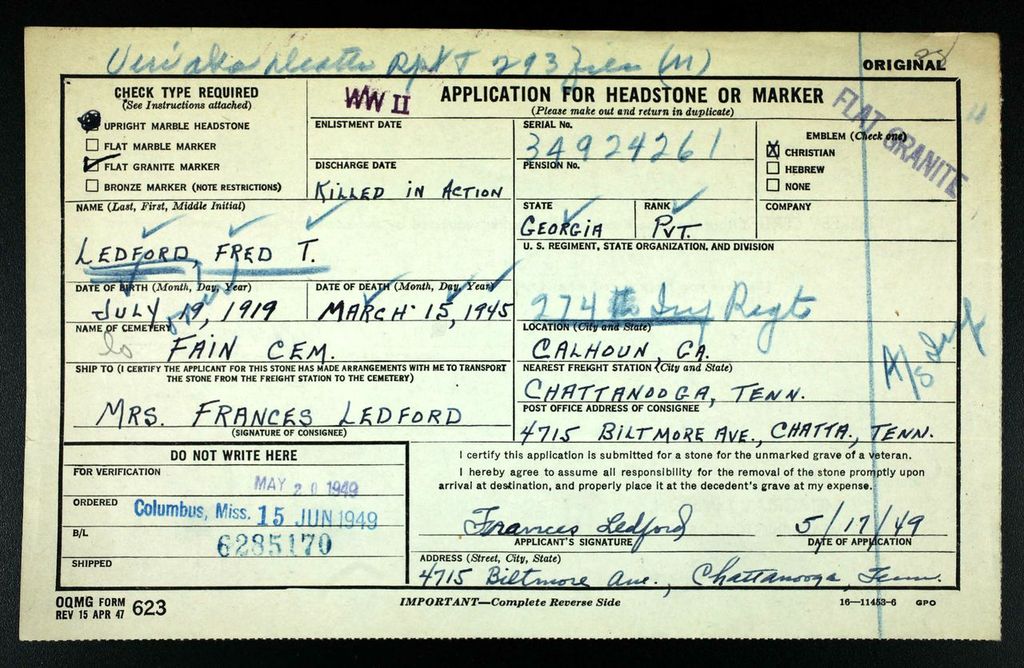 Death Rpt 293 files (M)
ORIGINAL
CHECK TYPE REQUIRED
(See Instructions attached)
UPRIGHT MARBLE HEADSTONE
FLAT MARBLE MARKER
FLAT GRANITE MARKER
BRONZE MARKER (NOTE RESTRICTIONS)
WW II
APPLICATION FOR HEADSTONE OR MARKER
(Please make out and return in duplicate)
FLAT GRANITE
ENLISTMENT DATE
DISCHARGE DATE
KILLED IN ACTION
SERIAL No.
34924261
PENSION No.
EMBLEM (Check one)
X CHRISTIAN
HEBREW
NONE
NAME (Last, First, Middle Initial)
LEDFORD, FRED T.
STATE
GEORGIA
RANK
PVT.
COMPANY
DATE OF BIRTH (Month, Day, Year)
JULY 19, 1919
DATE OF DEATH (Month, Day, Year)
MARCH 15, 1945
U. S. REGIMENT, STATE ORGANIZATION, AND DIVISION
274th Inf Regt
NAME OF CEMETERY
FAIN CEM.
LOCATION (City and State)
CALHOUN, GA.
SHIP TO (I CERTIFY THE APPLICANT FOR THIS STONE HAS MADE ARRANGEMENTS WITH ME TO TRANSPORT
THE STONE FROM THE FREIGHT STATION TO THE CEMETERY)
MRS. FRANCES LEDFORD
(SIGNATURE OF CONSIGNEE)
NEAREST FREIGHT STATION (City and State)
CHATTANOOGA, TENN.
POST OFFICE ADDRESS OF CONSIGNEE
4715 BILTMORE AVE., CHATTA., TENN.
DO NOT WRITE HERE
FOR VERIFICATION
MAY 20 1949
ORDERED
Columbus, Miss. 15 JUN 1949
B/L
6285170
SHIPPED
I certify this application is submitted for a stone for the unmarked grave of a veteran.
I hereby agree to assume all responsibility for the removal of the stone promptly upon
arrival at destination, and properly place it at the decedent's grave at my expense.
Frances Ledford
5/17/49
APPLICANT'S SIGNATURE
DATE OF APPLICATION
ADDRESS (Street, City, State)
4715 Biltmore Ave., Chattanooga, Tenn.
OQMG FORM
REV 15 APR 47 623
IMPORTANT—Complete Reverse Side
16—11453-6 GPO